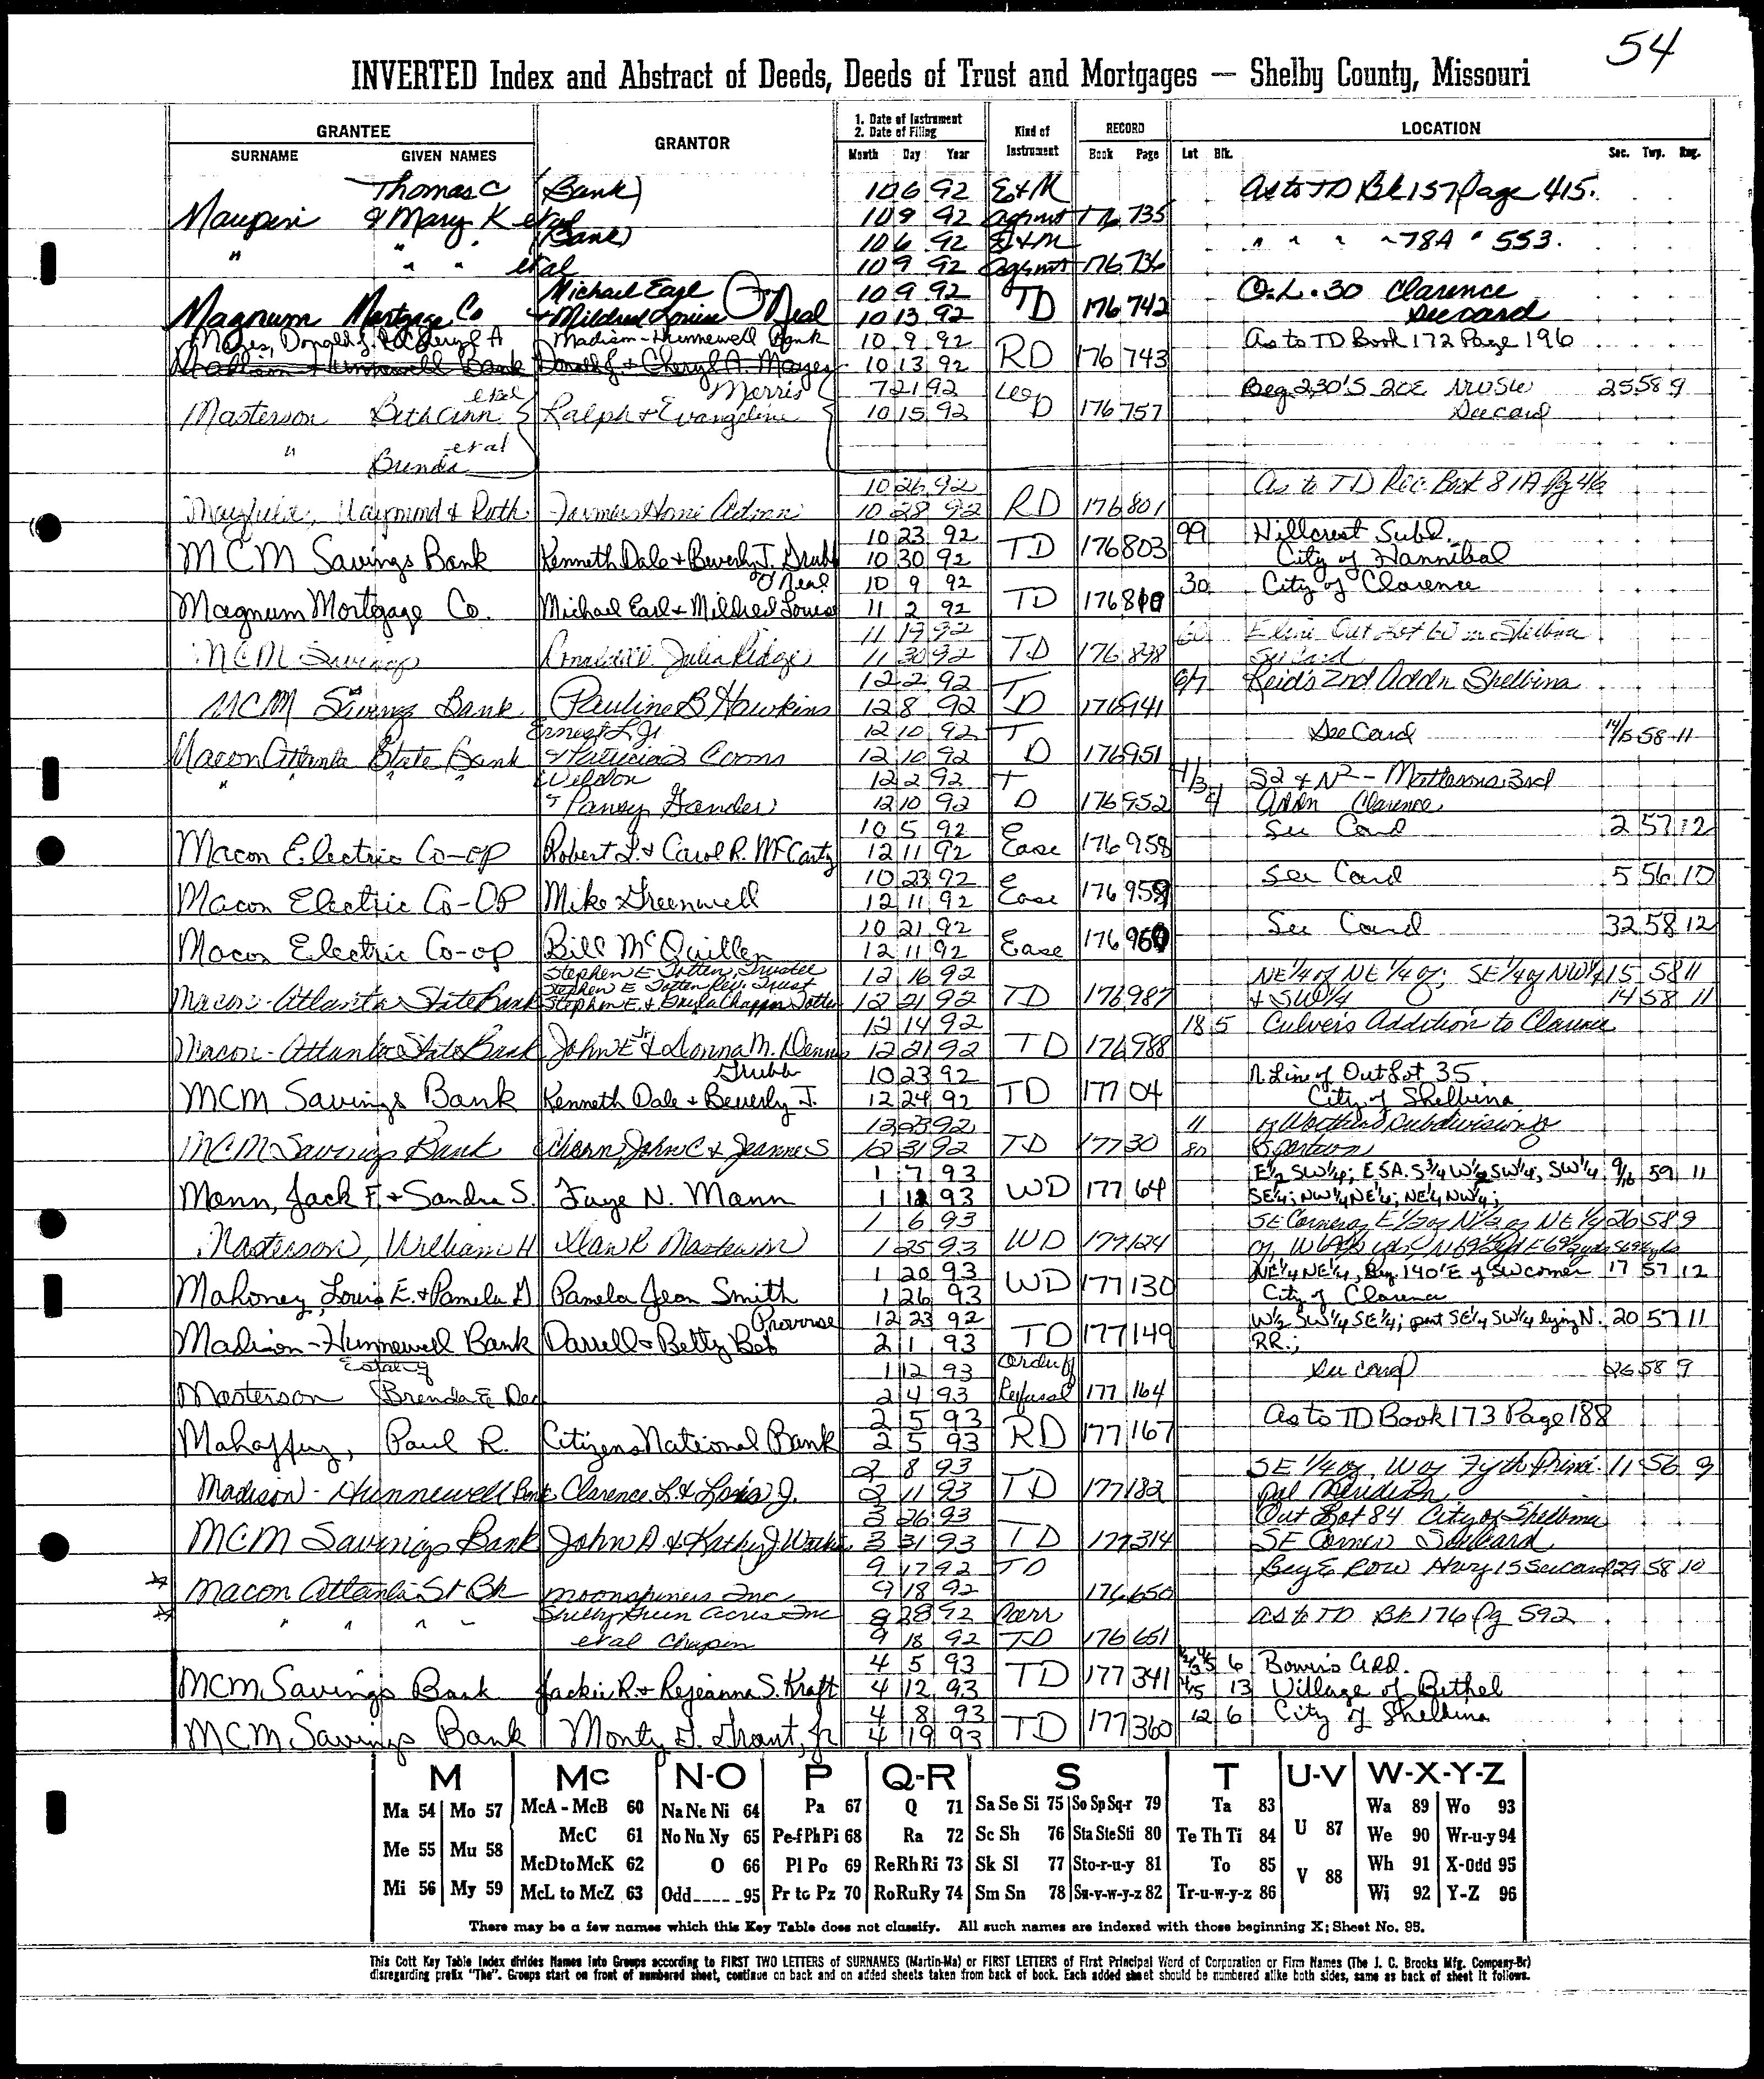 54
INVERTED Index and Abstract of Deeds, Deeds of Trust and Mortgages — Shelby County, Missouri
GRANTEE GRANTOR 1. Date of Instrument 2. Date of Filing Kind of Instrument RECORD LOCATION
SURNAME GIVEN NAMES Month Day Year Book Page Lot Blk. Sec. Twp. Rng.
Thomas C (Bank) 10 6 92 E+M As to TD Bk 157 Page 415.
Maupin & Mary K etal 10 9 92 Agmnt 176 735
(Bank) 10 6 92 E+M " " " " 78A " 553.
" " " etal 10 9 92 Agmnt 176 736
Michael Earl 10 9 92 TD O.L. 30 Clarence
Magnum Mortgage Co + Mildred Louise O'Neal 10 13 92 176 742 See card
Mayes, Donald J. & Cheryl A Madison-Hunnewell Bank 10 9 92 RD As to TD Book 172 Page 196
Madison Hunnewell Bank Donald J. + Cheryl A. Mayes 10 13 92 176 743
etal Morris 7 21 92 Beg 230'S 20E NWSW 25 58 9
Masterson Beth Ann Ralph + Evangeline 10 15 92 D 176 757 See card
" etal
Brenda
10 26 92 As to TD Rec. Book 81A Pg 46
Raymond & Ruth Farmers Home Admn 10 28 92 RD 176 801
10 23 92 99 Hillcrest Subd.
MCM Savings Bank Kenneth Dale + Beverly J. Grubb 10 30 92 TD 176 803 City of Hannibal
O'Neal 10 9 92 30 City of Clarence
Magnum Mortgage Co. Michael Earl + Mildred Louise 11 2 92 TD 176 810
11 19 92 60 E line Out Lot 60 in Shelbina
MCM Savings Julia Ridge 11 30 92 TD 176 898 See Card
12 2 92 6/7 Reid's 2nd Addn Shelbina
MCM Savings Bank Pauline B Hawkins 12 8 92 TD 176 941
Ernest L Jr 12 10 92 T See Card 14/15 58 11
Macon Atlanta State Bank & Patricia Coons 12 10 92 D 176 951
" " " " Weldon 12 2 92 T 1/3 S2 & N2 - Mattersons 3rd
& Pansy Gander 12 10 92 D 176 952 4 Addn Clarence
10 5 92 See Card 2 57 12
Macon Electric Co-op Robert L. + Carol R. McCarty 12 11 92 Ease 176 958
10 23 92 See Card 5 56 10
Macon Electric Co-OP Mike Greenwell 12 11 92 Ease 176 959
10 21 92 See Card 32 58 12
Macon Electric Co-op Bill McQuillen 12 11 92 Ease 176 960
Stephen E Totten, Trustee 12 16 92 NE 1/4 of NE 1/4 of; SE 1/4 of NW 1/4 15 58 11
Stephen E Totten Rev. Trust
Macon-Atlanta State Bank Stephen E. & Chappa Totten 12 21 92 TD 176 987 & SW 1/4 14 58 11
12 14 92 18 5 Culver's Addition to Clarence
Macon-Atlanta State Bank John E Jr & Donna M. Dennis 12 21 92 TD 176 988
Grubb 10 23 92 N Line of Out Lot 35.
MCM Savings Bank Kenneth Dale + Beverly J. 12 24 92 TD 177 04 City of Shelbina
12 23 92 11 Subdivision of
MCM Savings Bank John C & Jeanne S 12 31 92 TD 177 30 80
1 7 93 E 1/2 SW 1/4; E 5A. S 3/4 W 1/2 SW 1/4, SW 1/4 9/16 59 11
Mann, Jack F. + Sandra S. Faye N. Mann 1 12 93 WD 177 64 SE 1/4; NW 1/4 NE 1/4; NE 1/4 NW 1/4;
1 6 93 SE Corner of E 1/2 of N 1/2 of NE 1/4 26 58 9
Masterson, William H 1 25 93 WD 177 124
1 20 93 NE 1/4 NE 1/4, Beg. 140'E of SW corner 17 57 12
Mahoney, Louis E. + Pamela D Pamela Jean Smith 1 26 93 WD 177 130 City of Clarence
Provrose 12 23 92 W 1/2 SW 1/4 SE 1/4; part SE 1/4 SW 1/4 lying N. 20 57 11
Madison-Hunnewell Bank Darrell + Betty Bob 2 1 93 TD 177 149 RR.;
Estate of 1 12 93 Order of See card 26 58 9
Masterson Brenda E Dec 2 4 93 Refusal 177 164
2 5 93 As to TD Book 173 Page 188
Mahaffey, Paul R. Citizens National Bank 2 5 93 RD 177 167
2 8 93 SE 1/4 of W of Fifth Princi- 11 56 9
Madison-Hunnewell Bank Clarence L & Lois J. 2 11 93 TD 177 182 pal Meridian
3 26 93 Out Lot 84 City of Shelbina
MCM Savings Bank John A & Kathy J 3 31 93 TD 177 314 SE Corner See card
9 17 92 TD Beg E ROW Hwy 15 See card 29 58 10
Macon Atlanta St Bk Moonspinners Inc 9 18 92 176 650
" " " " Shelby Green Acres Inc 8 28 92 Corr As to TD Bk 176 Pg 592
etal Chapin 9 18 92 TD 176 651
4 5 93 6 Bower's Add.
MCM Savings Bank Jackie R. + Rejeanna S. Kraft 4 12 93 TD 177 341 13 Village of Bethel
4 8 93 12 6 City of Shelbina
MCM Savings Bank Monty G. Grant, Jr 4 19 93 TD 177 360
M Mc N-O P Q-R S T U-V W-X-Y-Z
Ma 54 Mo 57 McA - McB 60 Na Ne Ni 64 Pa 67 Q 71 Sa Se Si 75 So Sp Sq-r 79 Ta 83 U 87 Wa 89 Wo 93
Me 55 Mu 58 McC 61 No Nu Ny 65 Pe-f Ph Pi 68 Ra 72 Sc Sh 76 Sta Ste Sti 80 Te Th Ti 84 We 90 Wr-u-y 94
McD to McK 62 O 66 Pl Po 69 Re Rh Ri 73 Sk Sl 77 Sto-r-u-y 81 To 85 V 88 Wh 91 X-Odd 95
Mi 56 My 59 McL to McZ 63 Odd____95 Pr to Pz 70 Ro Ru Ry 74 Sm Sn 78 Su-v-w-y-z 82 Tr-u-w-y-z 86 Wi 92 Y-Z 96
There may be a few names which this Key Table does not classify. All such names are indexed with those beginning X; Sheet No. 95.
This Cott Key Table Index divides Names into Groups according to FIRST TWO LETTERS of SURNAMES (Martin-Ma) or FIRST LETTERS of First Principal Word of Corporation or Firm Names (The J. C. Brooks Mfg. Company-Br)
disregarding prefix "The". Groups start on front of numbered sheet, continue on back and on added sheets taken from back of book. Each added sheet should be numbered alike both sides, same as back of sheet it follows.